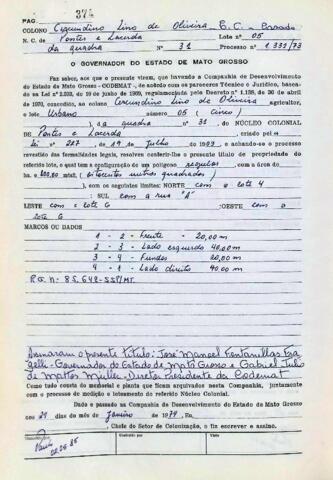 PAG. 374
COLONO Cezundino Lino de Oliveira C.C - Casado
N. C. de Pontes e Lacerda Lote n.o 05
da quadra N.o 31 Processo n.o 1.333/73
O GOVERNADOR DO ESTADO DE MATO GROSSO
Faz saber, aos que o presente virem, que havendo a Companhia de Desenvolvimento
do Estado de Mato Grosso - CODEMAT -, de acordo com os pareceres Técnico e Jurídico, basea-
do na Lei
de 19 de junho de 1969, regulamentada pelo Decreto n.o 1.138, de 30 de abril
de 1970, concedido, ao colono Cezundino Lino de Oliveira agricultor,
o lote Urbano número 05 (Cinco)
), da quadra n.o 31, do NÚCLEO COLONIAL
DE Pontes e Lacerda criado pel a
Lei n.o 227 de 19 de Julho de e achando-se o processo
revestido das formalidades legais, resolveu conferir-lhe o presente título de propriedade do
referido lote, o qual tem a configuração de um polígono regular com a área do
ha. e 800,00 mts2. (oitocentos metros quadrados)
), com os seguintes limites: NORTE com o lote 4
: SUL com a rua "A"
LESTE com o lote 6 :OESTE com o
lote 6
MARCOS OU DADOS
1 - 2 - Frente - 20,00 m
2 - 3 - Lado esquerdo 40,00 m
3 - 4 - Fundos 20,00 m
4 - 1 - Lado direito 40,00 m
R.G. n.o 85.642-SSP/MT.
Assinaram o presente título: José Manoel Fontanillas Fra-
gelli - Governador do Estado de Mato Grosso e Gabriel Julio
de Mattos Müller - Diretor Presidente da Codemat
Como tudo consta do memorial e planta que ficam arquivados nesta Companhia, juntamente
com o processo de medição e loteamento do referido Núcleo Colonial.
Dado e passado na Companhia de Desenvolvimento do Estado de Mato Grosso
aos 29 dias do mês de Janeiro de 1974, Eu,
, Chefe do Setor de Colonização, o fiz escrever e assino.
Conferido por
Visto